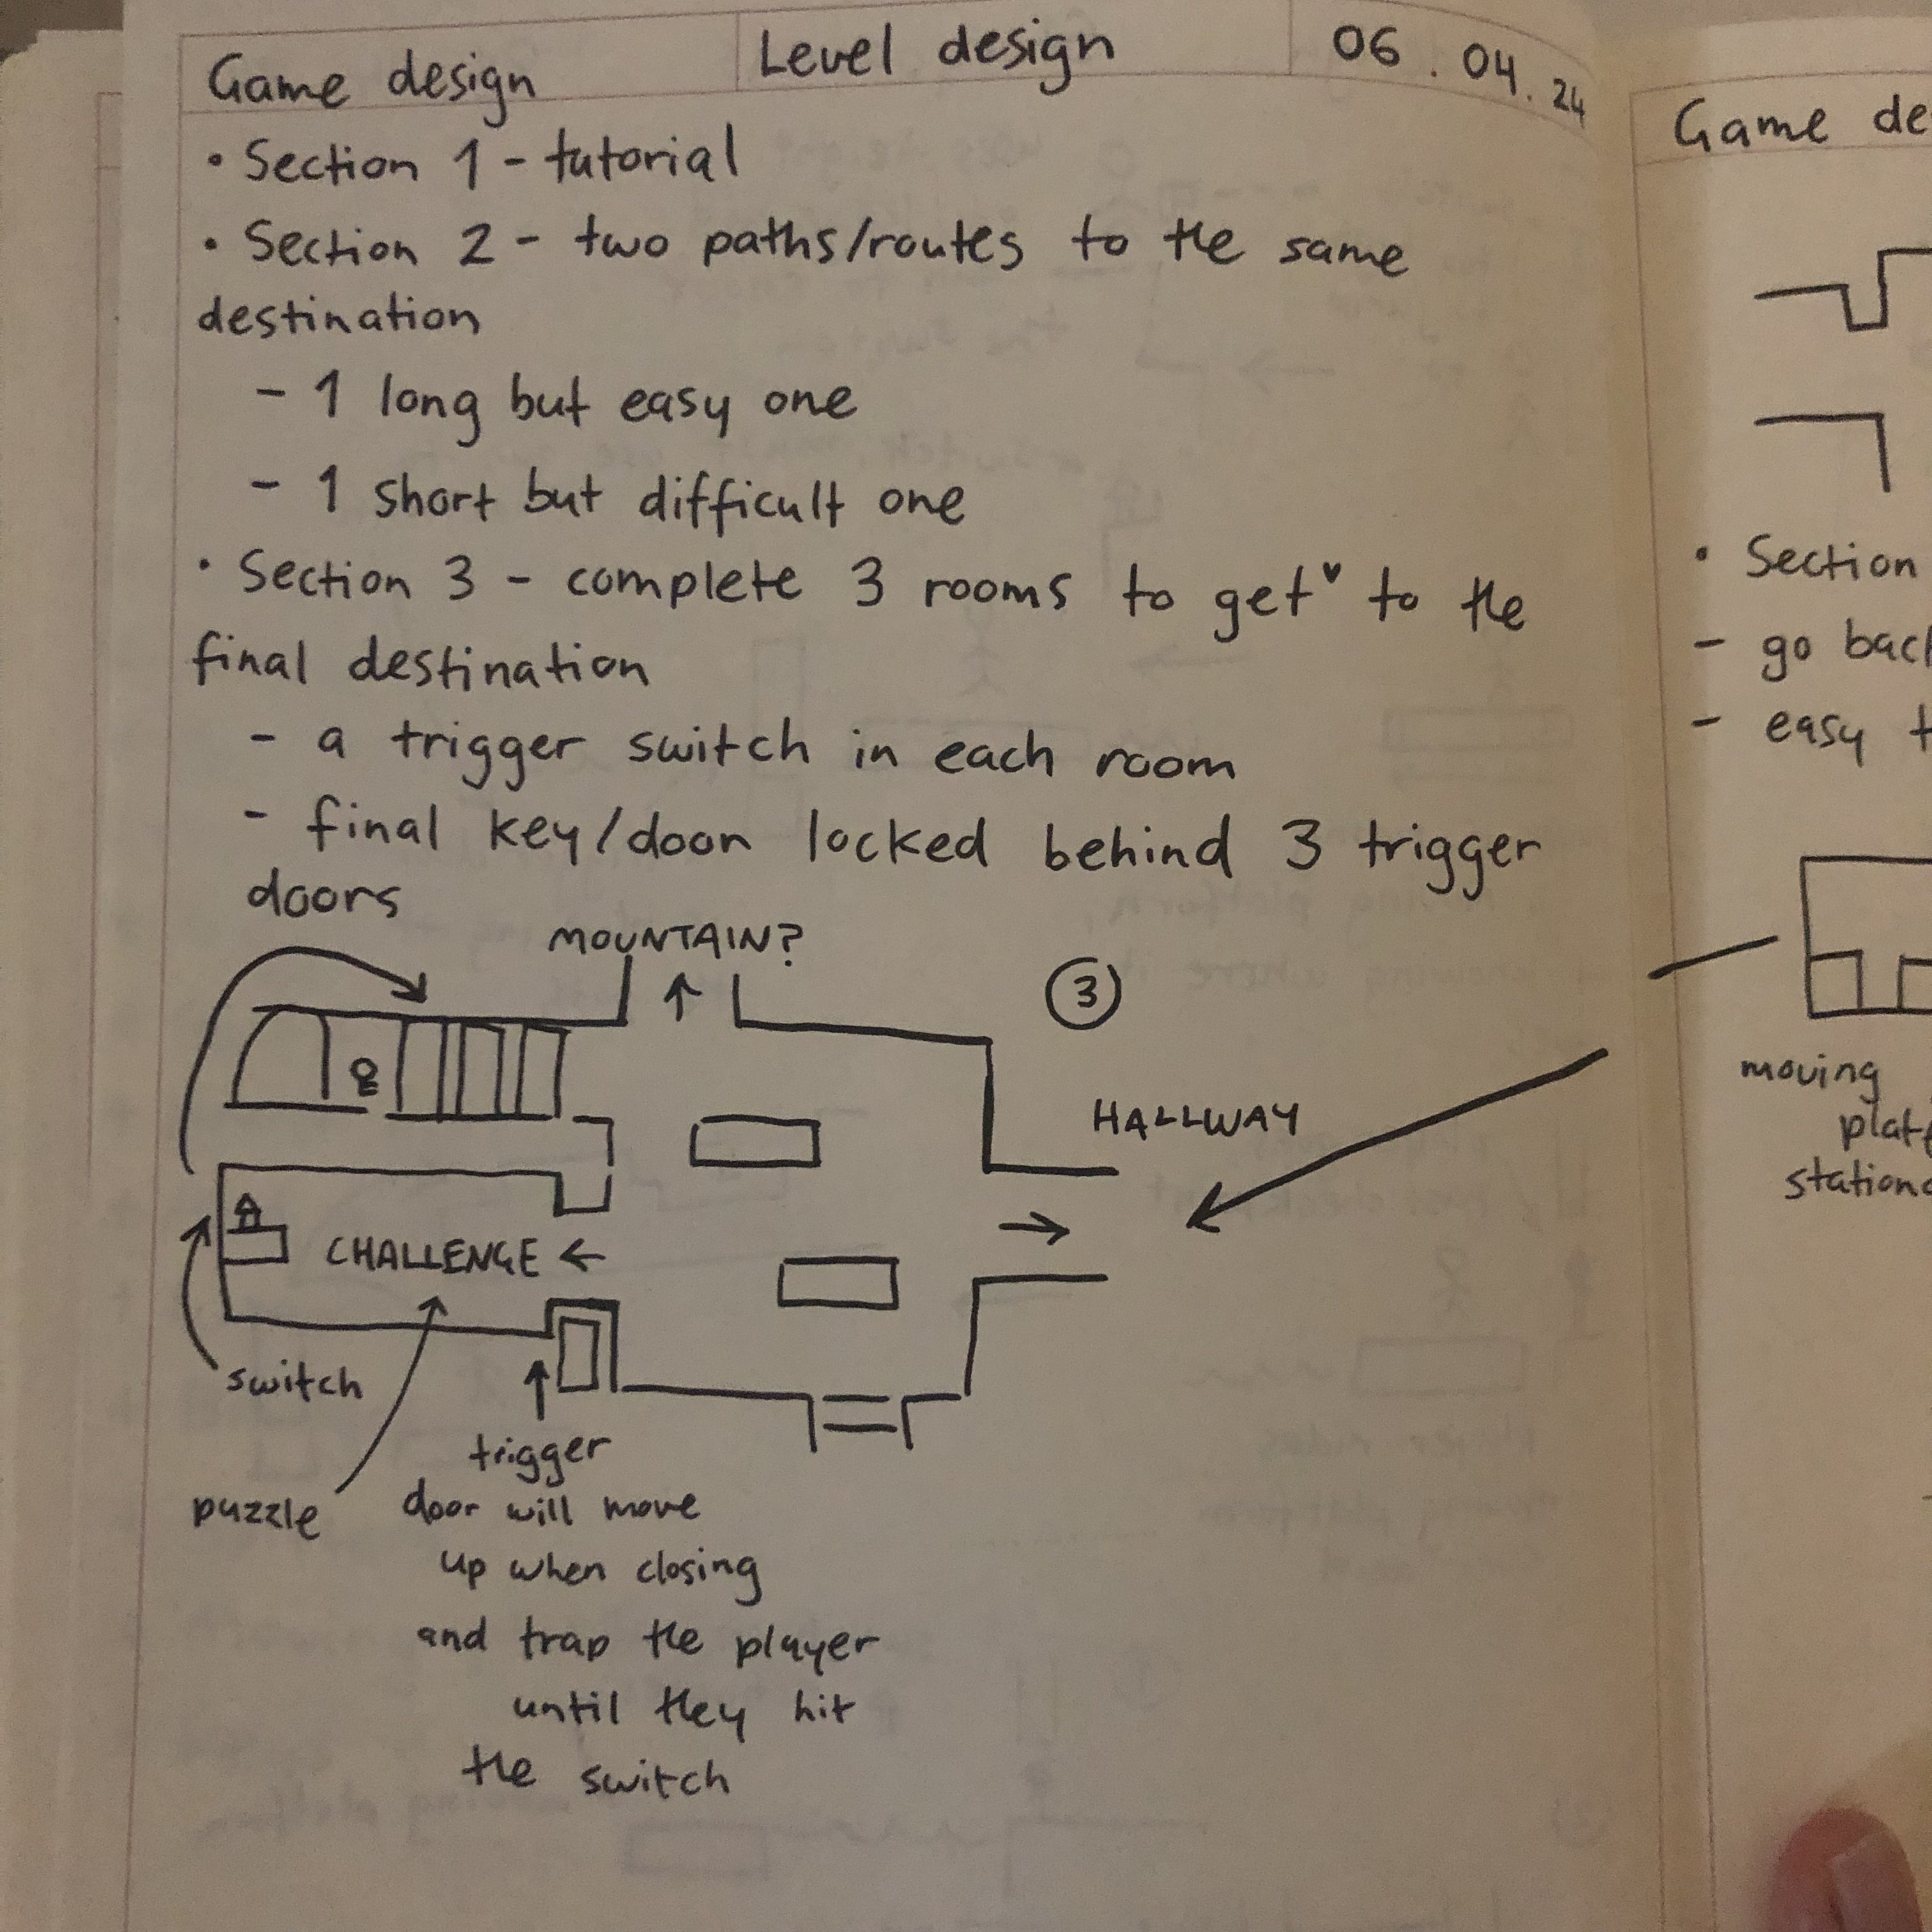 Game design
Level design
06.04.24
• Section 1 - tutorial
• Section 2 - two paths/routes to the same
destination
- 1 long but easy one
- 1 short but difficult one
• Section 3 - complete 3 rooms to get to the
final destination
- a trigger switch in each room
- final key/door locked behind 3 trigger
doors
MOUNTAIN?
3
HALLWAY
CHALLENGE
switch
puzzle
trigger
door will move
up when closing
and trap the player
until they hit
the switch
Game
• Section
- go
- easy
moving